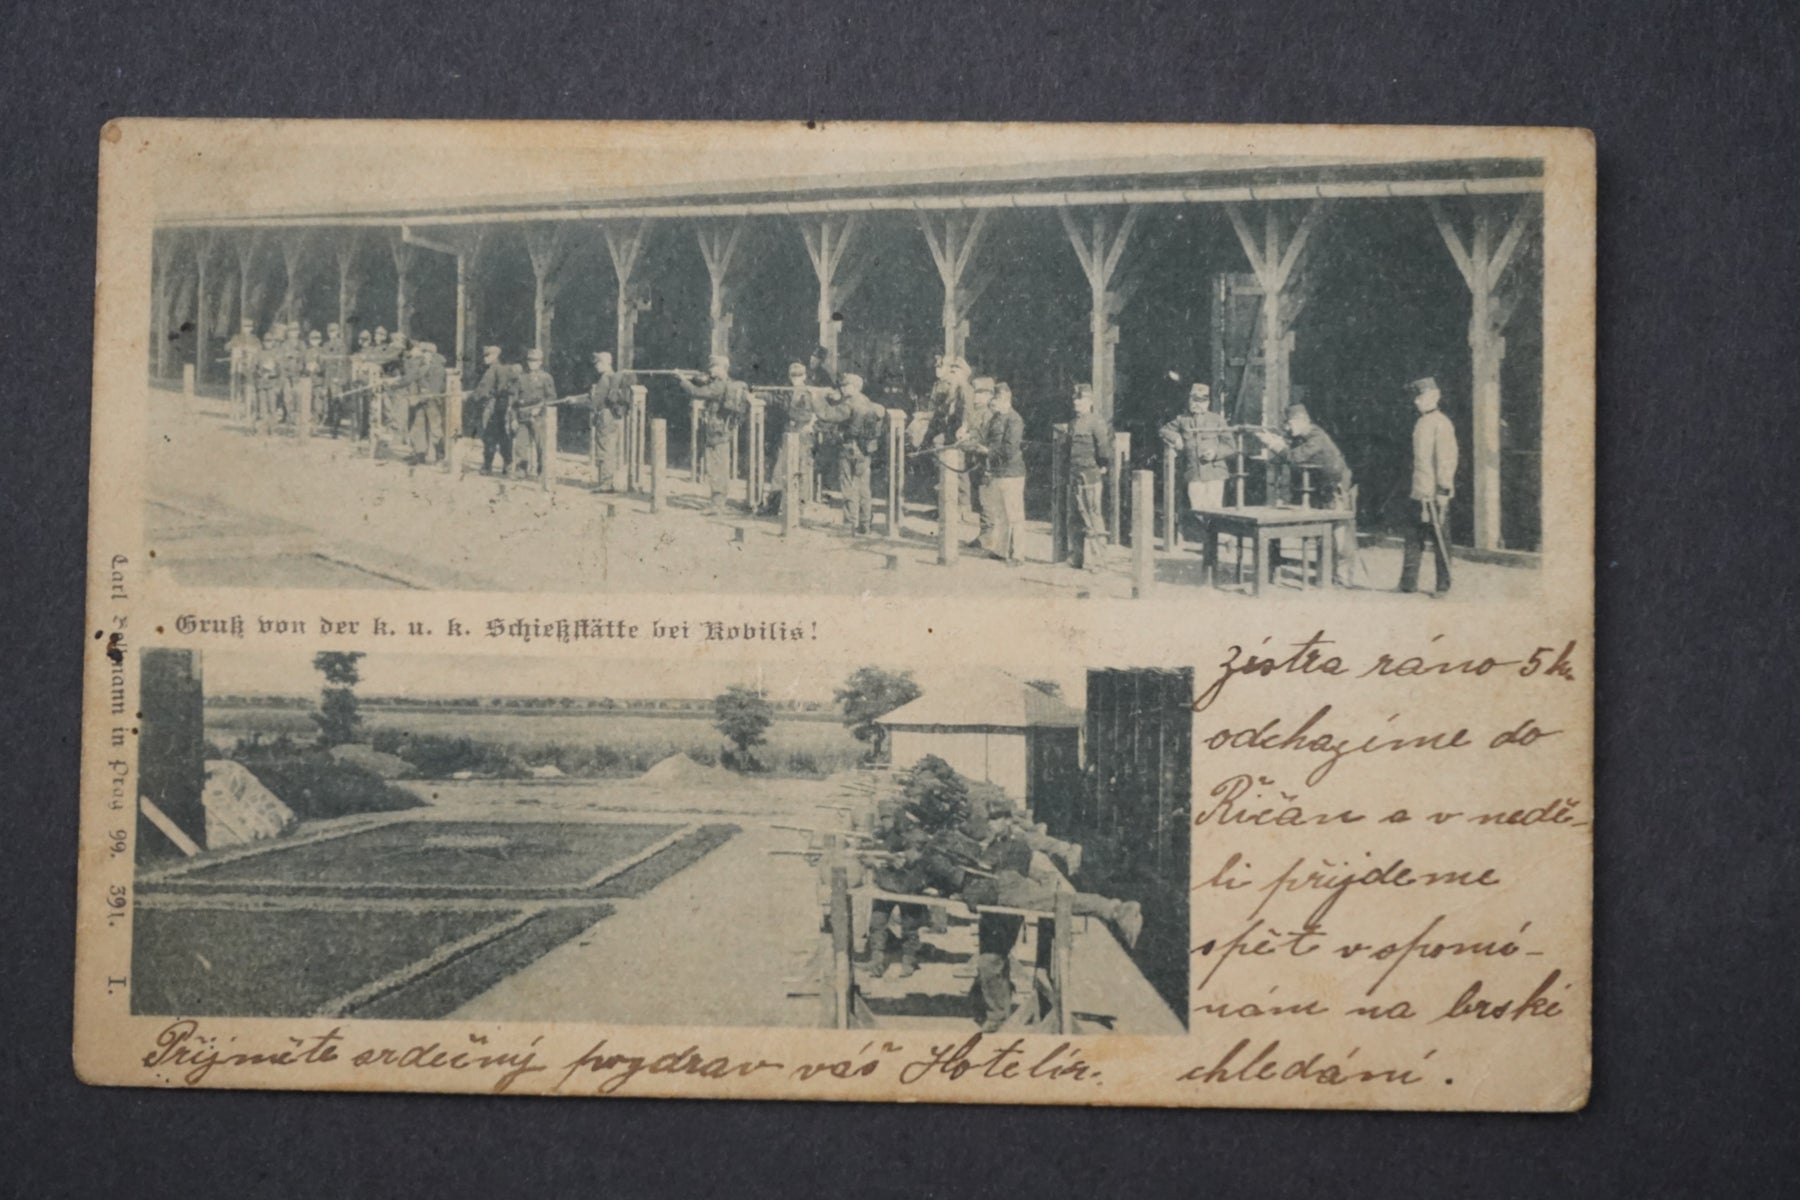 Gruß von der k. u. k. Schießstätte bei Kobilis!
Carl Bellmann in Prag 99. 391. I.
zístra ráno 5 h.
odchazíme do
Řičan a v nedě-
li přijdeme
spět v spomí-
nám na brské
chledání.
Přijměte srdečný pozdrav váš Hotelír.